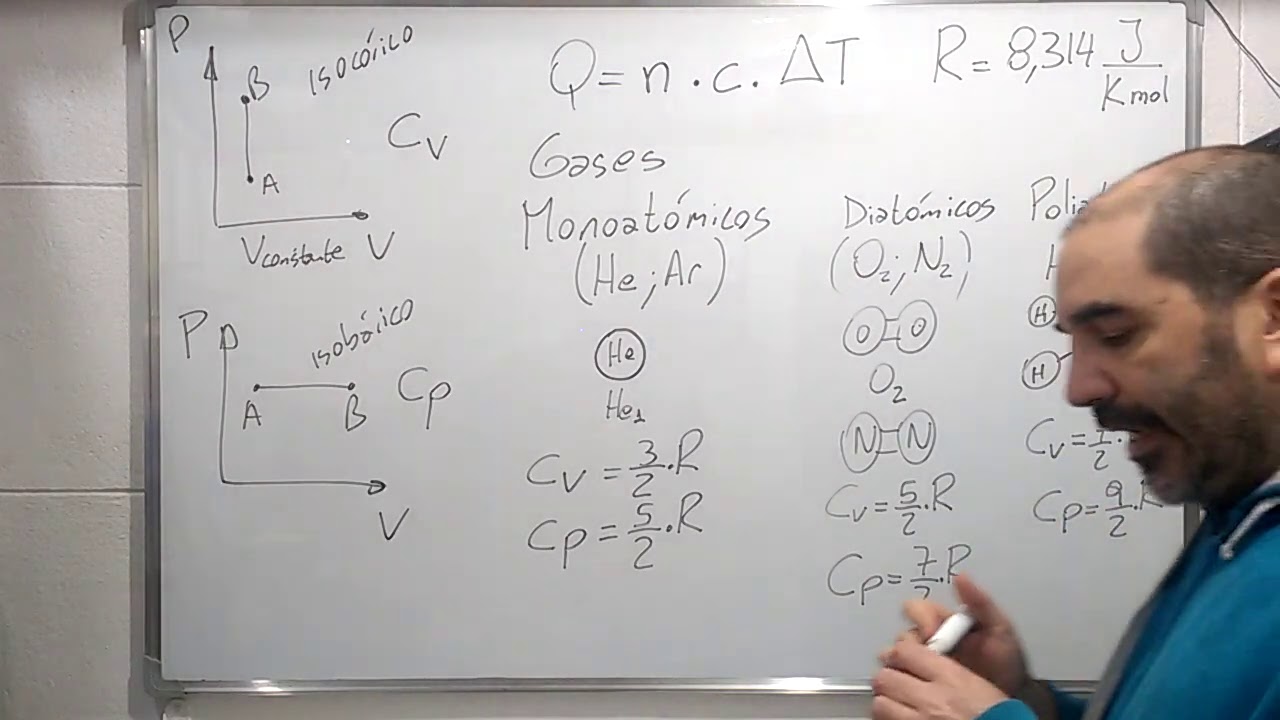 P
isocórico
B
A
Cv
Vconstante V
P
isobárico
A B
Cp
V
Q = n . c . ΔT
R = 8,314 J/Kmol
Gases
Monoatómicos
(He ; Ar)
He
He1
Cv = 3/2 . R
Cp = 5/2 . R
Diatómicos
(O2 ; N2)
O = O
O2
N = N
Cv = 5/2 . R
Cp = 7/2 . R
H
H
Cv = 7/2 .
Cp = 9/2 . R